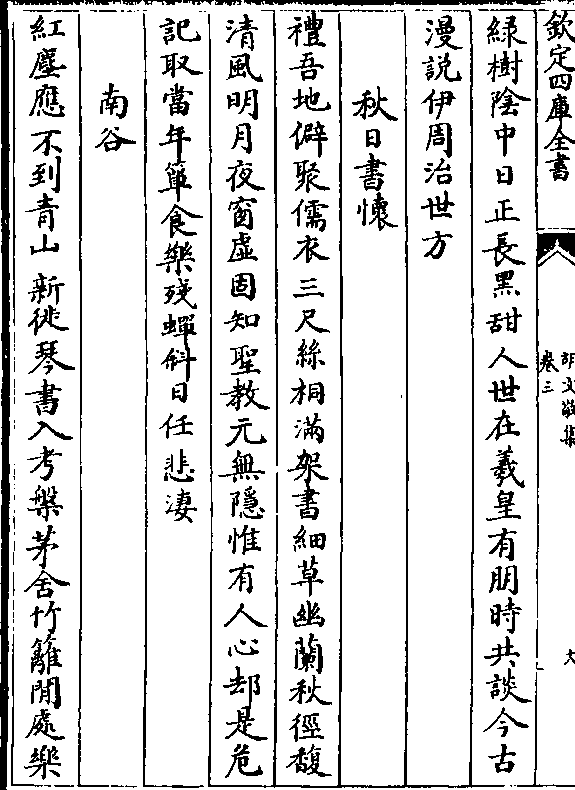 欽定四庫全書
胡文敬集
卷三
綠樹陰中日正長黑甜人世在羲皇有朋時共談今古
漫説伊周治世方
秋日書懷
禮吾地僻聚儒衣三尺絲桐滿架書細草幽蘭秋徑馥
清風明月夜窗虛固知聖教元無隱惟有人心却是危
記取當年簞食樂殘蟬斜日任悲淒
南谷
紅塵應不到青山新徙琴書入考槃茅舍竹籬閒處樂